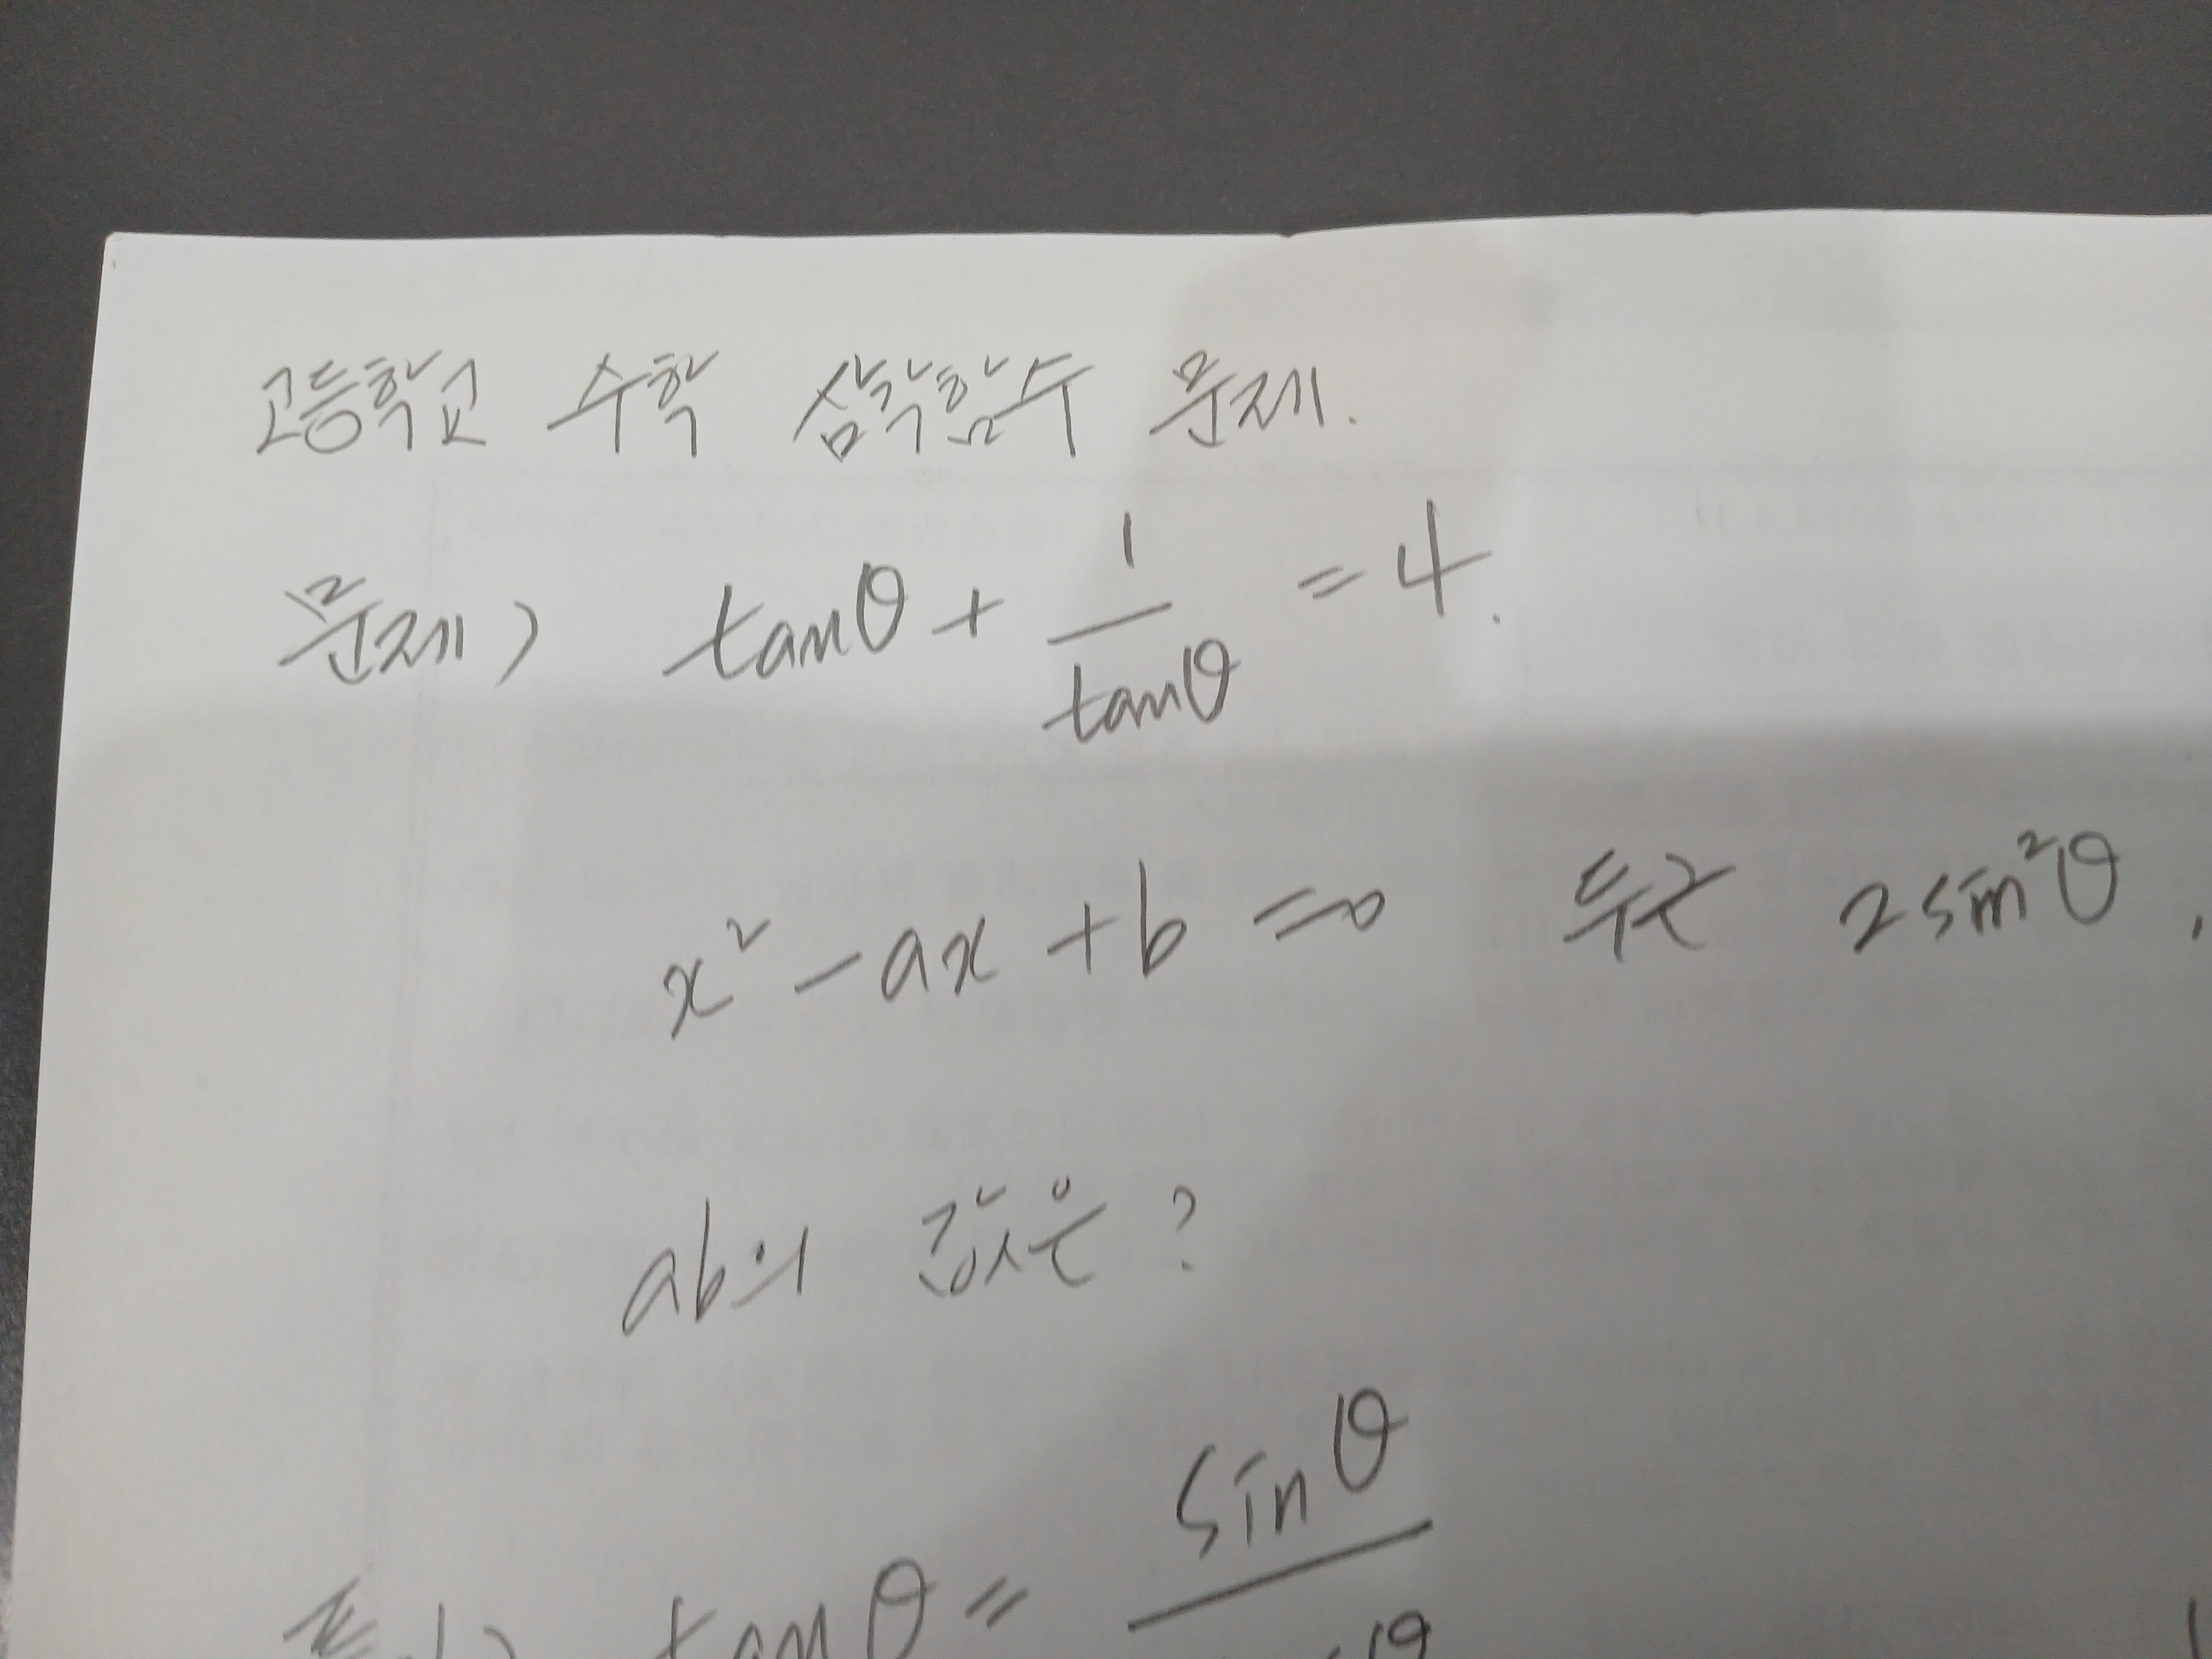 고등학교 수학 삼각함수 문제.
문제) tanθ + 1/tanθ = 4.
x² - ax + b = 0 두근 2sin²θ,
ab의 값은?
tanθ = sinθ/